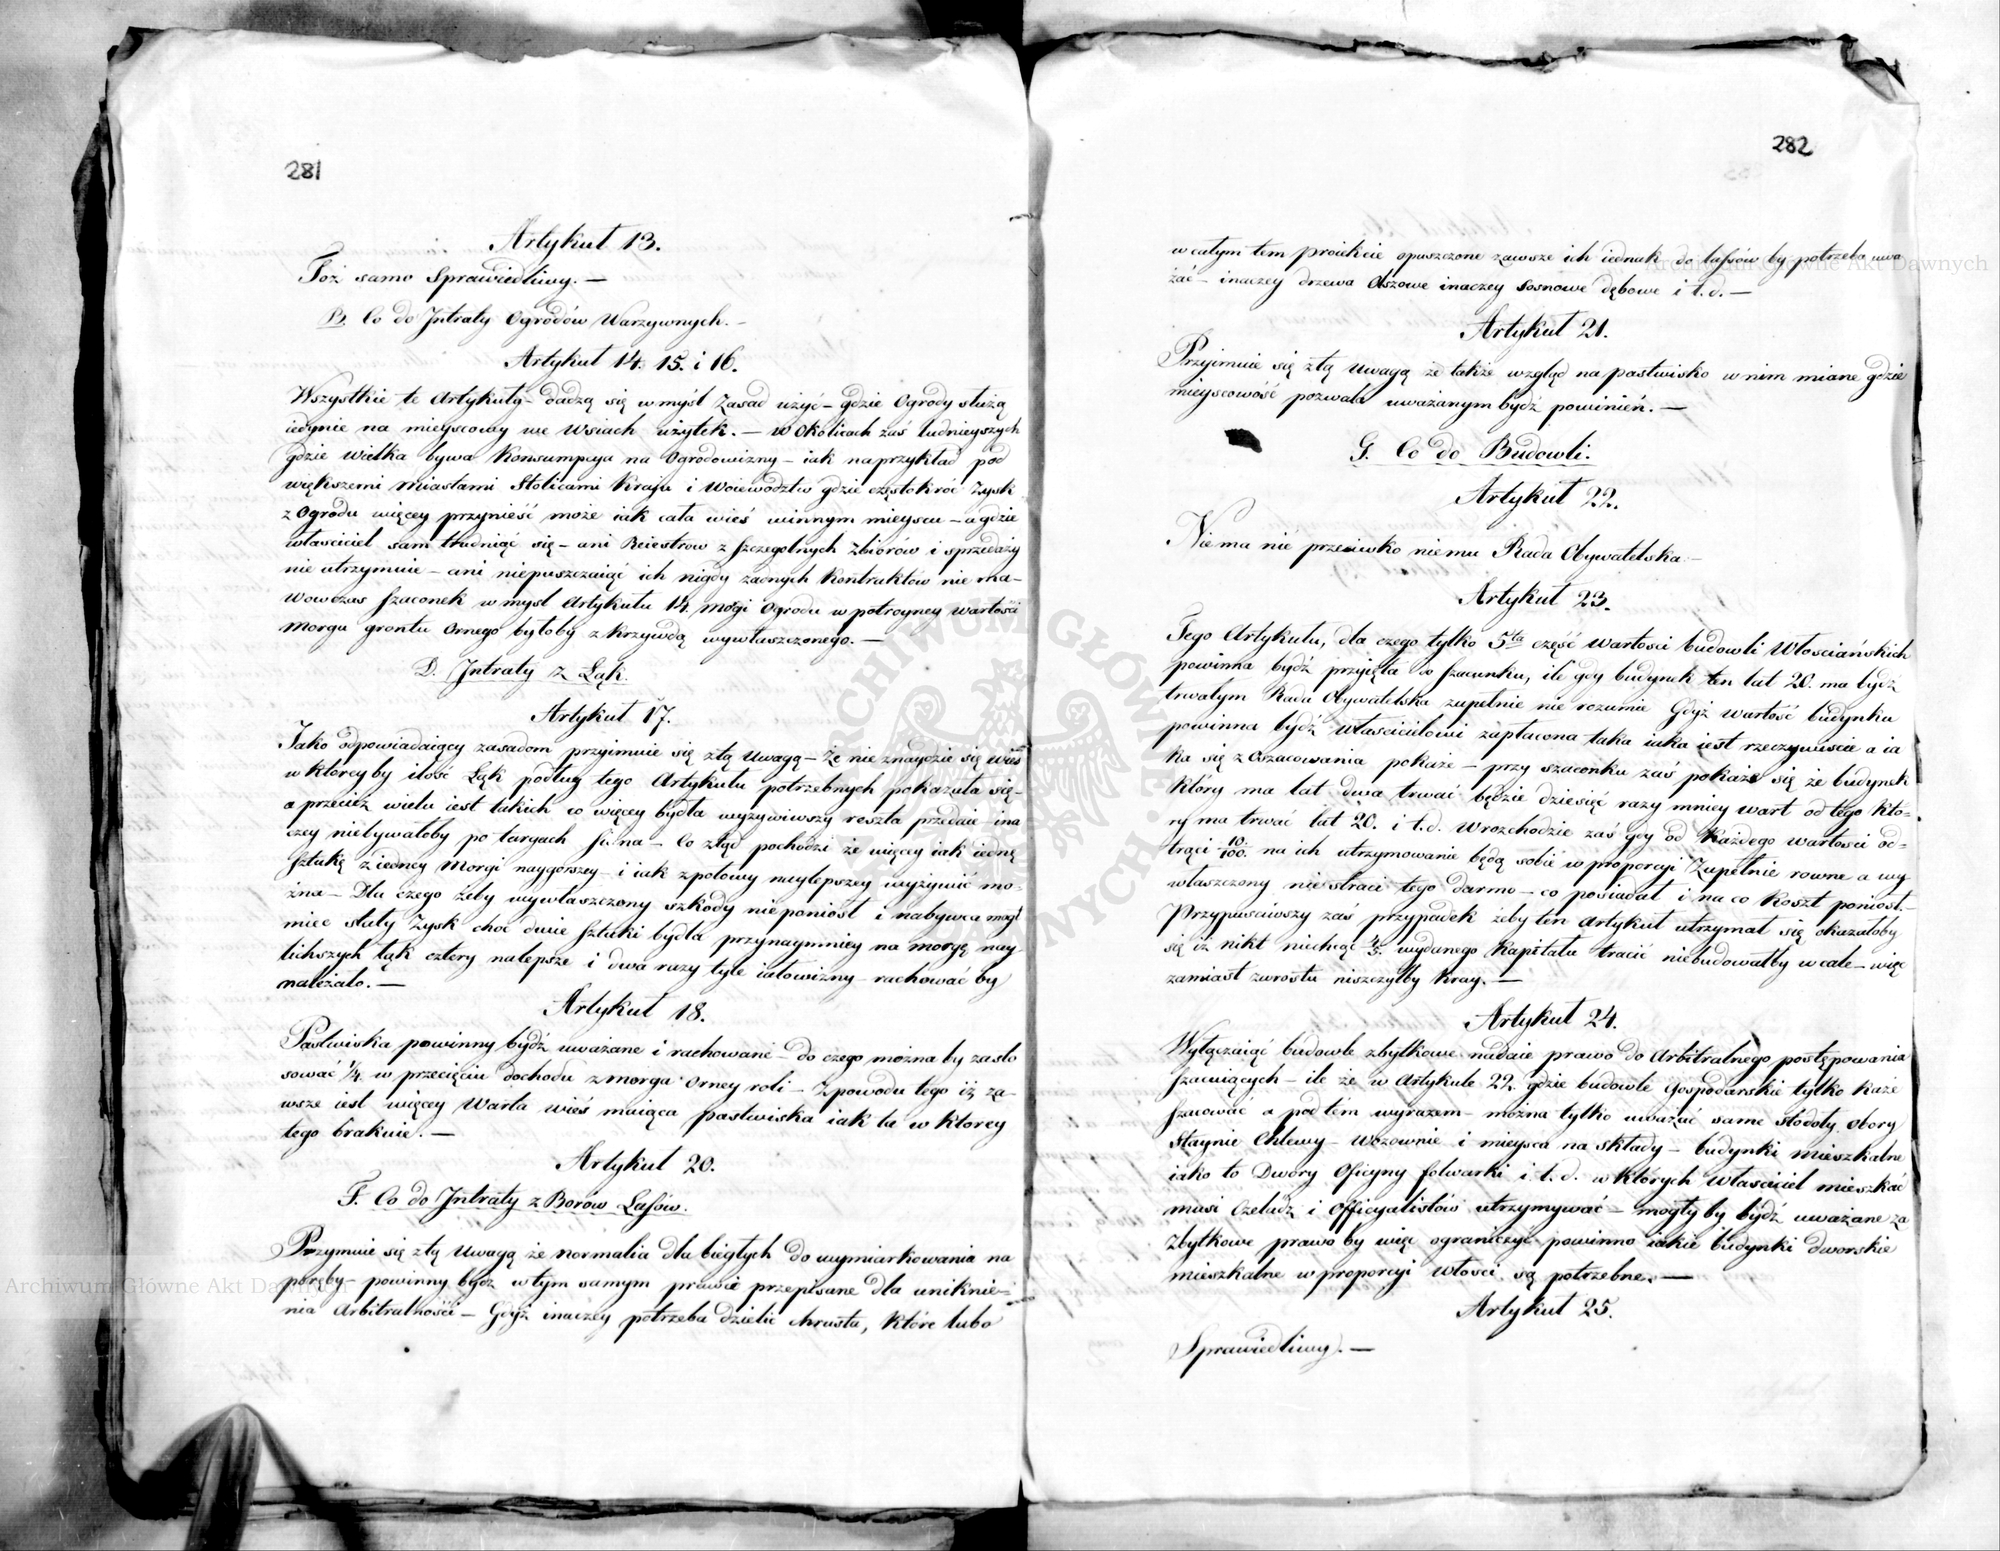 281
Artykuł 13.
Toż samo Sprawiedliwy. —
B. Co do Jntraty Ogrodów Warzywnych. —
Artykuł 14. 15. i 16.
Wszystkie te Artykuły – dadzą się w myśl Zasad użyć – gdzie Ogrody służą
iedynie na mieyscowy we Wsiach użytek. — w Okolicach zaś ludnieyszych
gdzie wielka bywa Konsumpcya na Ogrodowizny – iak na przykład pod
większemi Miastami Stolicami Kraju i Woiewództw gdzie częstokroć Zysk
z Ogrodu więcey przynieść może iak cała wieś w innym mieyscu – a gdzie
właściciel sam trudniąc się – ani Reiestrow z szczegolnych Zbiorów i sprzedaży
nie utrzymuie – ani niepuszczaiąc ich nigdy żadnych Kontraktów nie ma –
wowczas szacunek w myśl Artykułu 14. morgi Ogrodu w potroyney wartości
Morgu gruntu Ornego byłoby z krzywdą wywłaszczonego. —
D. Jntraty z Łąk.
Artykuł 17.
Jako odpowiadaiący zasadom przyimuie się z tą Uwagą – Że nie znaydzie się wieś
w ktoreyby ilość Łąk podług tego Artykułu potrzebnych pokazała się –
a przecież wielu iest takich co więcey bydła wyżywiwszy reszta przedaie – ina
czey niebywałoby po targach siana – Co ztąd pochodzi że więcey iak iednę
sztukę z iedney Morgi naygorszey – i iak z połowy naylepszey wyżywić mo-
żna – Dla czego żeby wywłaszczony szkody nieponiosł i nabywca mogł
mieć stały Zysk choć dwie sztuki bydła przynaymniey na morgę nay
lichszych łąk cztery nalepsze i dwa razy tyle iałowizny – rachować by
należało. —
Artykuł 18.
Pastwiska powinny bydź uważane i rachowane – do czego można by zasto
sować 1/4 w przecięciu dochodu z morga Orney roli – Z powodu tego iż za-
wsze iest więcey Warta wieś maiąca pastwiska iak ta w ktorey
tego brakuie. —
Artykuł 20.
F. Co do Jntraty z Borów Lasów.
Przymuie się z tą Uwagą że normalia dla biegłych do wymiarkowania na
poręby – powinny bydź w tym samym prawie przepisane dla uniknie-
nia Arbitralności – Gdyż inaczey potrzeba dzielić chrusta, które lubo
282
w całym tem proiekcie opuszczone zawsze ich iednak do lassów by potrzeba uwa
żać – inaczey drzewa Olszowe inaczey sosnowe dębowe i t. d. —
Artykuł 21.
Przyimuie się z tą Uwagą że także wzgląd na pastwisko w nim miane gdzie
mieyscowość pozwala uważanym bydź powinień. —
G. Co do Budowli.
Artykuł 22.
Niema nić przeciwko niemu Rada Obywatelska. —
Artykuł 23.
Tego Artykułu, dla czego tylko 5ta część Wartości budowli Włosciańskich
powinna bydź przyięta do szacunku, ile gdy budynek ten lat 20. ma bydź
trwałym Rada Obywatelska zupełnie nie rozumie Gdyż wartość budynku
powinna bydź właścicielowi zapłacona taka iaka iest rzeczywiscie a ia
ka się z Oszacowania pokaże – przy szacunku zaś pokaże się że budynek
Który ma lat dwa trwać będzie dziesięć razy mniey wart od tego Kto-
ry ma trwać lat 20. i t. d. W rozchodzie zaś gdy od Każdego wartości od-
trąci 10/100 na ich utrzymowanie będą sobie w proporcyi Zupełnie rowne a wy
właszczony nie straci tego darmo – co posiadał i na co koszt poniosł. –
Przypusciwszy zaś przypadek żeby ten Artykuł utrzymał się okazałoby
się iż nikt niechcąc 4/5 wydanego Kapitału tracić niebudowałby w cale – więc
zamiast zwrostu niszczyłby Kray. —
Artykuł 24.
Wyłączaiąć budowle zbytkowe nadaie prawo do Arbitralnego postępowania
szacuiących – ile że w Artykule 22. gdzie budowle Gospodarskie tylko każe
szacować a pod tém wyrazem – można tylko uważać same stodoły Obory
Staynie Chlewy – Wozownie i mieysca na składy – budynki mieszkalne
iako to Dwory Oficyny folwarki i t. d. w których Właściciel mieszkać
musi Czeladz i Officyalistów utrzymywać – mogły by bydź uważane za
Zbytkowe prawo by więc ograniczyć powinno iakie budynki dworskie
mieszkalne w proporcyi Włości są potrzebne. —
Artykuł 25.
Sprawiedliwy. —